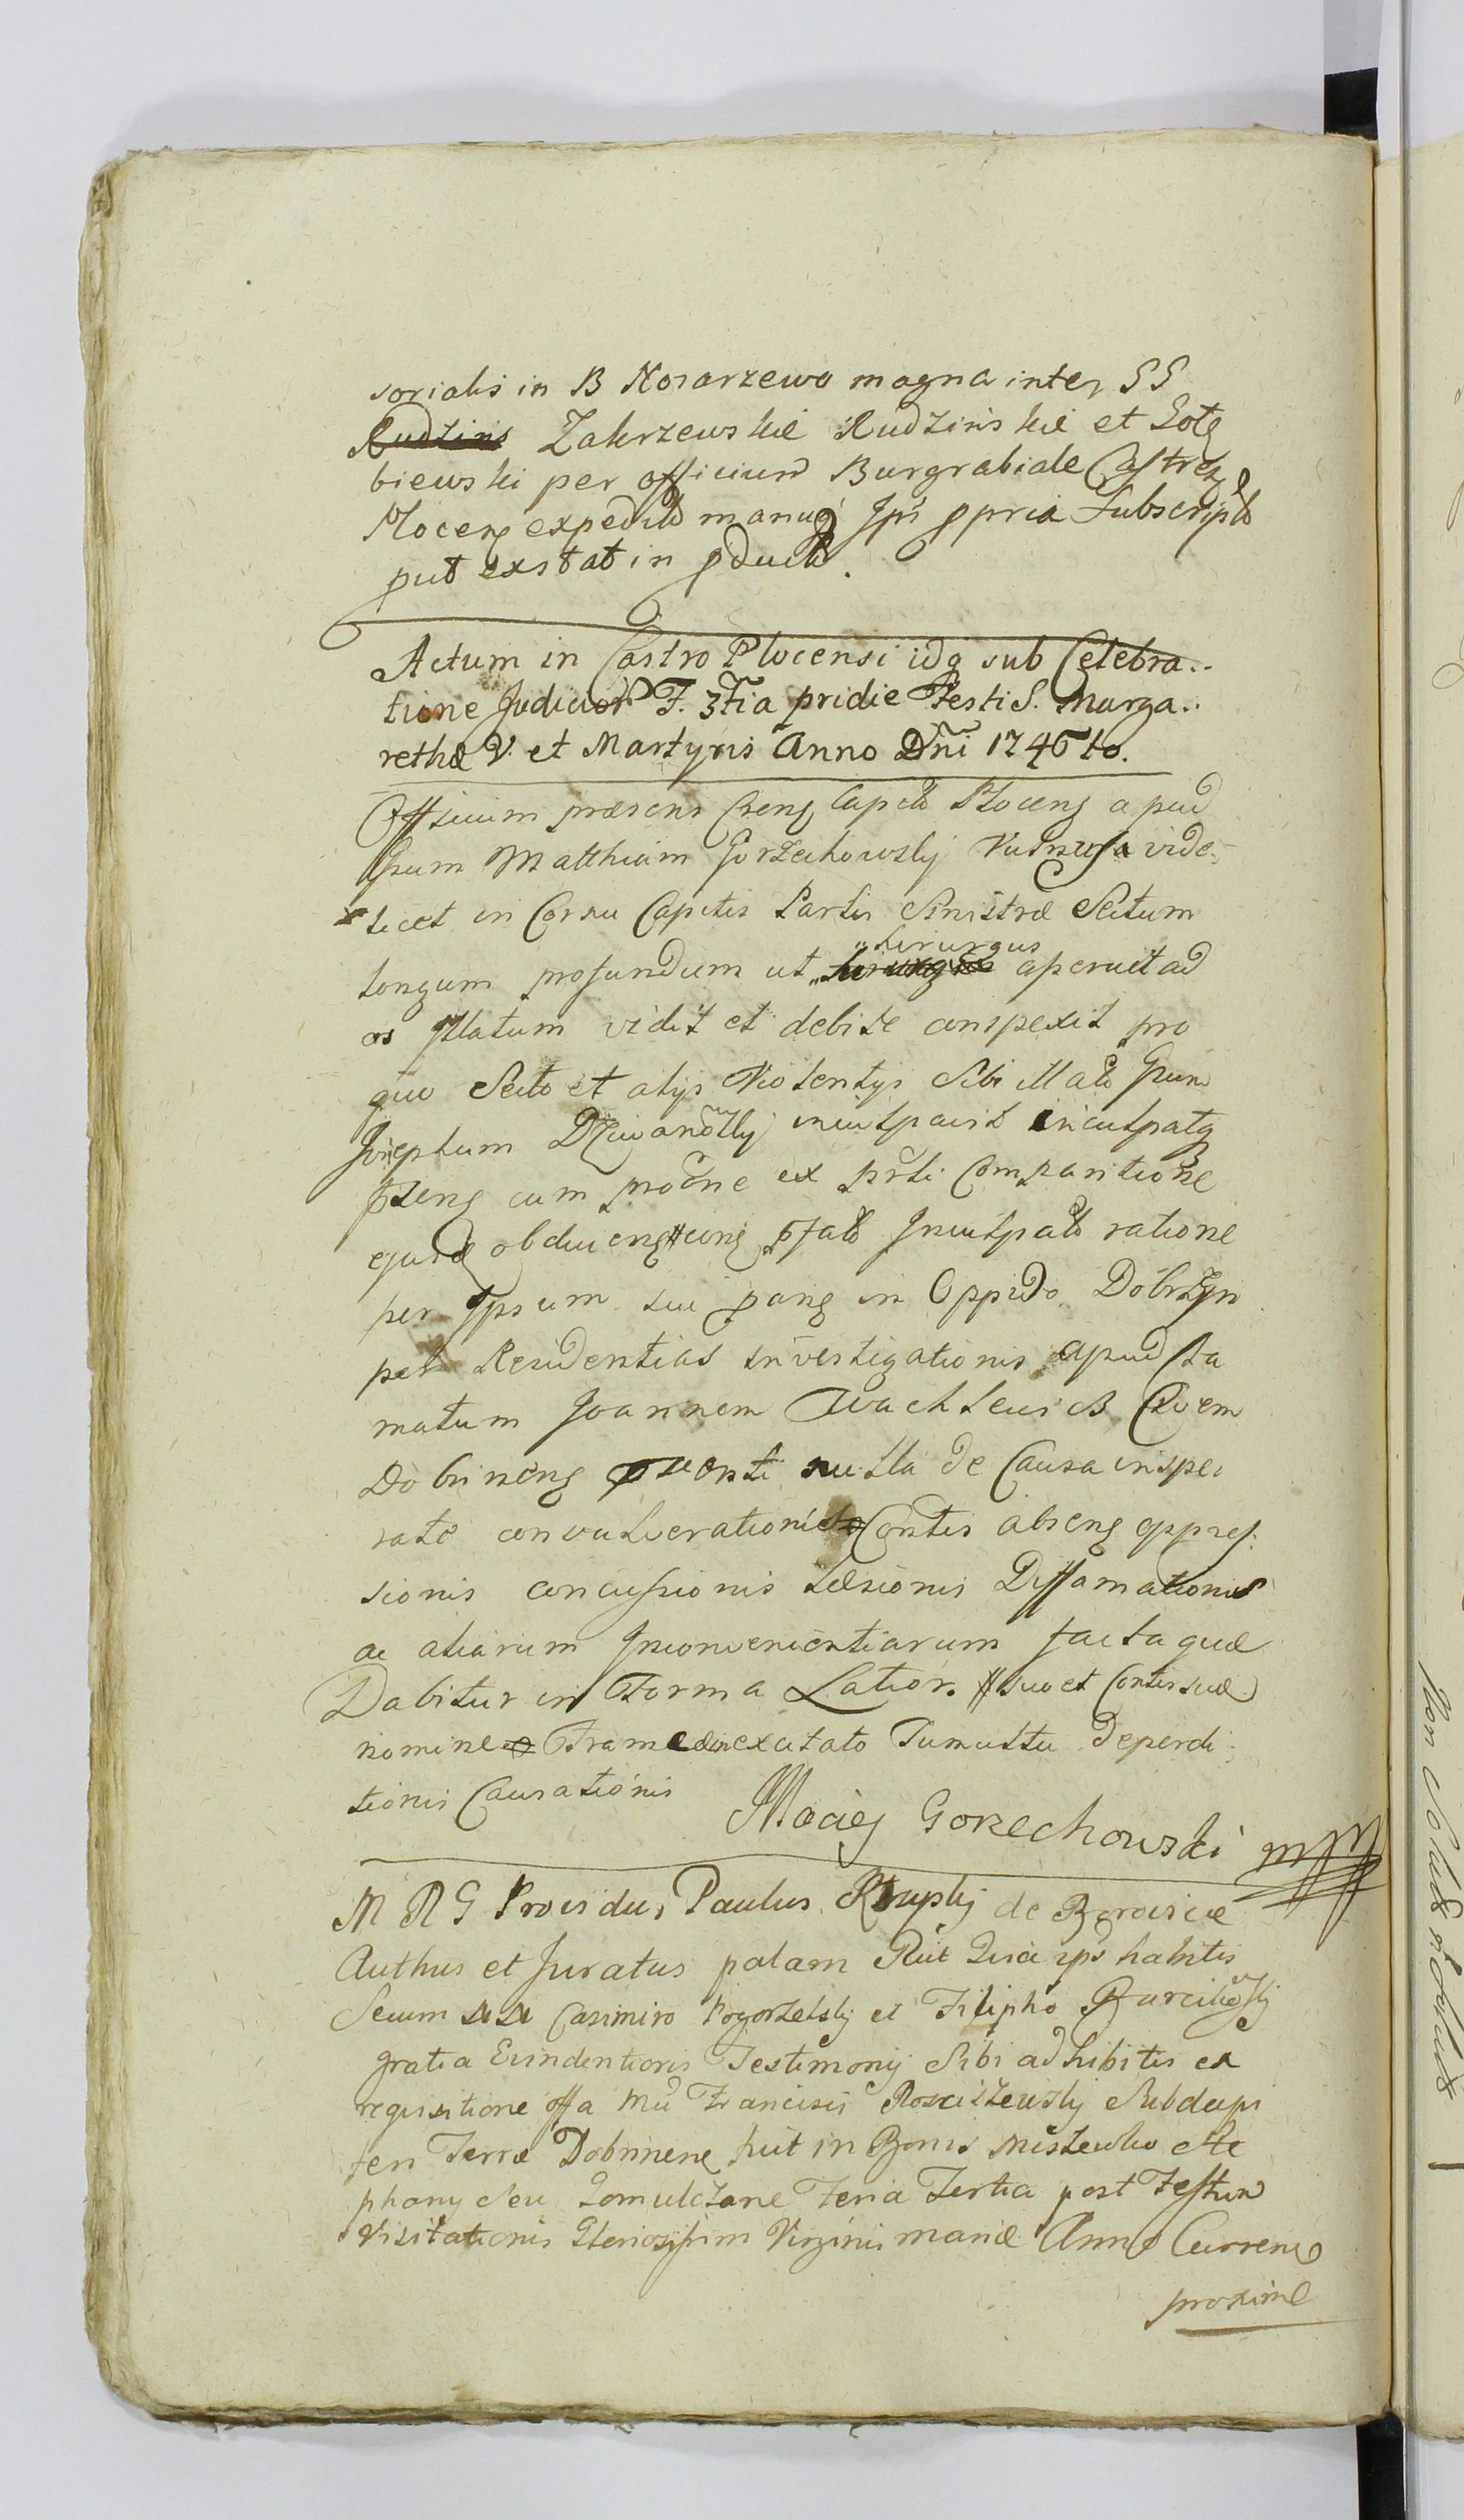 sorialis in B Nosarzewo magna inter SS
Rudzins Zakrzewskie Rudzinskie et Gołę
biewski per officium Burgrabiale Castren
Plocen expedit manuq Ipsi ppria Subscript
put exstat in pduct.
Actum in Castro Plocensi idq sub Celebra..
tione Judicior F. 3tia pridie Festi S. Marga..
rethæ V. et Martyris Anno Dñi 1746to.
Officium præsens Capit Plocen apud
Gsum Matthiam Gorzechowsky Vulnera vide.
licet in Cornu Capitis Partis Sinistræ Scitum
longum profundum ut Cirurgus aperuit ad
os illatum vidit et debite conspexit pro
quo Scito et alijs Violentijs Sibi illat Gsum
Josephum inculpavit inculpatq
cum proõne ex prti Comparitione
ejusd pfat Inculpat ratione
per Ipsum in Oppido Dobrzyn
per Residentias investigationis apud fa
matum Joannem Civem
Dobrinen nulla de Causa inspe
rate convulnerationis Contis absen oppres.
sionis concussionis læsionis Diffamationis
ac aliarum Inconvenientiarum facta quæ
Dabitur in Forma Latiori # suo et Contis suæ
nomine # Frameæ excitato Tumultu Deperdi.
tionis Causationis
Maciej Gorzechowski mpp
M R G Providus Paulus de
Authus et Juratus palam Rēt Quia ips habitis
Secum NN Casimiro Pogorzelsky et Filipho
gratia Evindentioris Testimonij Sibi adhibitis ex
requisitione offa Mci Francisci Rosciszewsky Subdapi
feri Terræ Dobrinen fuit in Bonis Miszewko Ste
phany Seu Gomulczane Feria Tertia post Festum
Visitationis Gloriosissim Virginis Mariæ Anno Curren
proxime